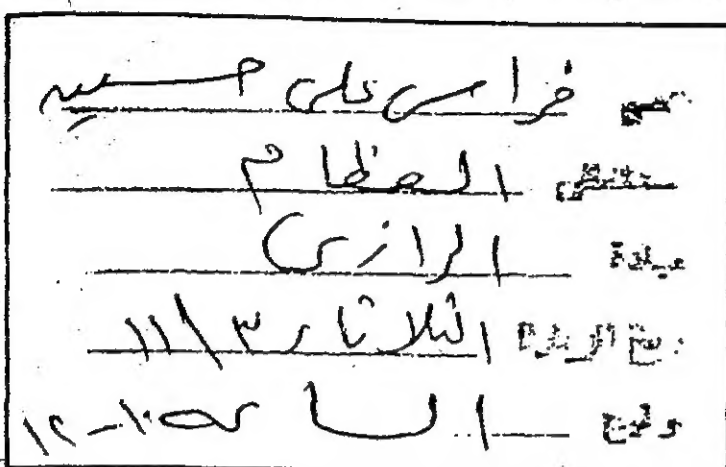 فراس علي حسين
العظام
عيادة الرازي
الثلاثاء ١١/٣
الساعة ١٠-١٢